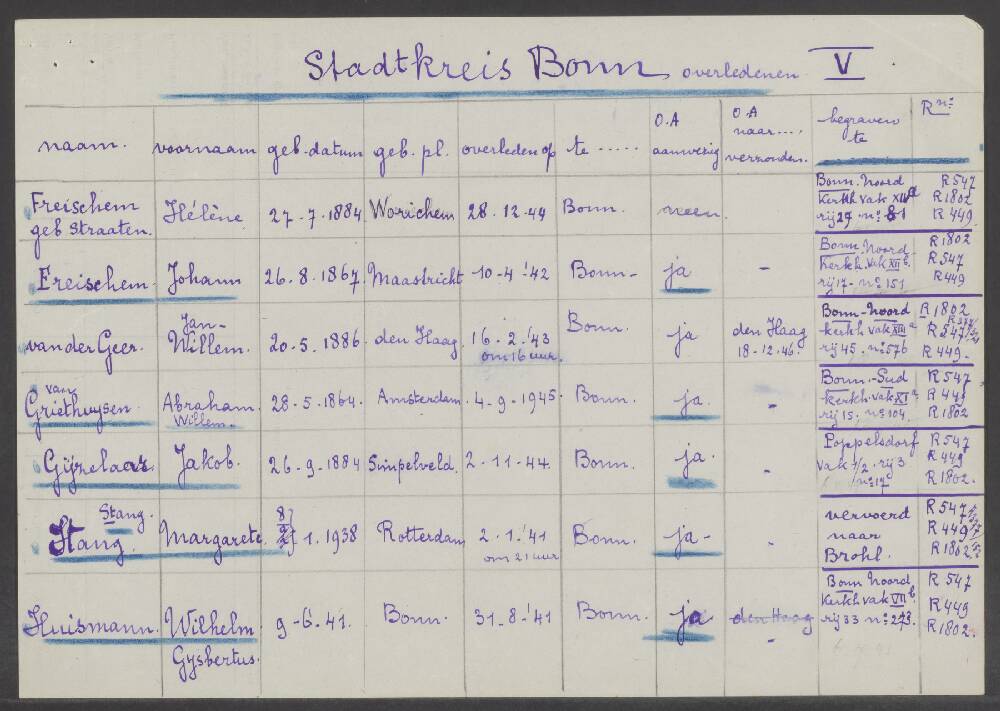 Stadtkreis Bonn overledenen V
naam. voornaam geb. datum geb. pl. overleden op te ..... O.A aanwezig O.A naar .... verzonden. begraven te R nº:
Freischem geb Straaten. Hélène 27-7-1884 Worichem 28.12.44 Bonn. neen. Bonn. Noord Kerkh vak XIII a rij 29 nº 81 R 547 R 1802 R 449
Freischem. Johann 26.8.1867. Maastricht 10-4-'42 Bonn- ja - Bonn Noord Kerkh. vak XII b. rij 17- nº 151 R 1802 R 547 R 449
van der Geer. Jan-Willem. 20-5-1886. den Haag 16-2-'43 om 16 uur. Bonn. ja den Haag 18-12-'46. Bonn-Noord kerkh vak XIII a rij 45. nº 576 R 1802 R 547 R 449-
van Griethuysen. Abraham Willem. 28-5-1864. Amsterdam 4-9-1945. Bonn. ja. - Bonn.-Sud kerkh. vak XI a rij 15. nº 104. R 547 R 449 R 1802
Gijzelaar Jakob. 26-9-1884 Simpelveld. 2-11-44. Bonn. ja. - Poppelsdorf vak 1/2 rij 3 nº 17 R 547 R 449 R 1802.
Stang. Stang. Margarete 1.1938 Rotterdam 2-1-'41 om 21 uur Bonn. ja- - vervoerd naar Brohl. R 547 R 449 R 1802
Huismann. Wilhelm Gysbertus. 9-6-41. Bonn. 31-8-'41 Bonn. ja den Haag - Bonn Noord Kerkh vak VII b rij 33 nº 273. R 547 R 449 R 1802.